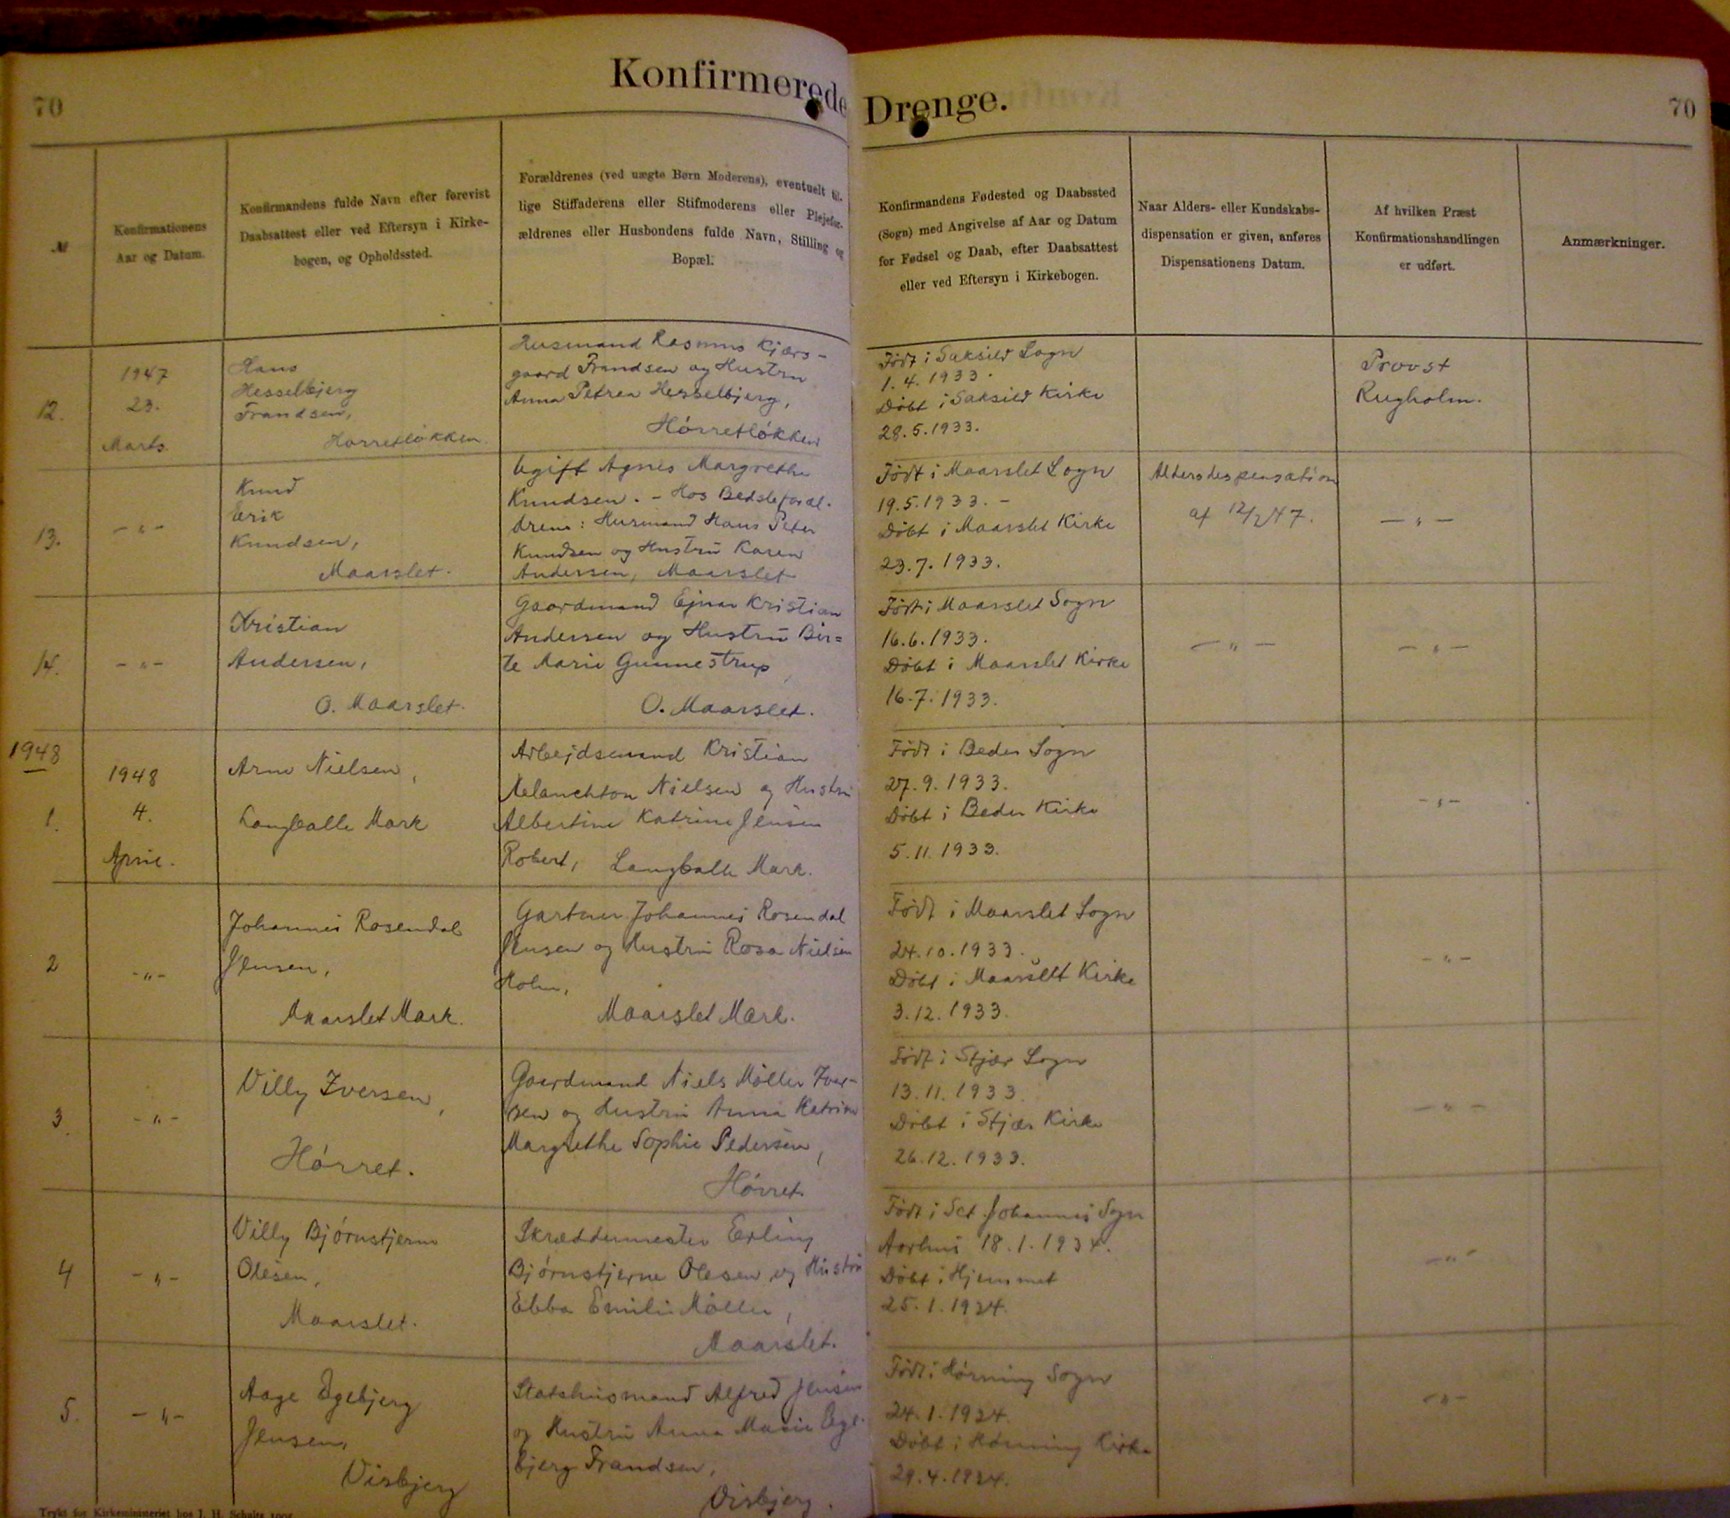 70
Konfirmerede
Drenge.
70
№
Konfirmationens
Aar og Datum.
Konfirmandens fulde Navn efter forevist
Daabsattest eller ved Eftersyn i Kirke-
bogen, og Opholdssted.
Forældrenes (ved uægte Børn Moderens), eventuelt til-
lige Stiffaderens eller Stifmoderens eller Plejefor-
ældrenes eller Husbondens fulde Navn, Stilling og
Bopæl.
Konfirmandens Fødested og Daabssted
(Sogn) med Angivelse af Aar og Datum
for Fødsel og Daab, efter Daabsattest
eller ved Eftersyn i Kirkebogen.
Naar Alders- eller Kundskabs-
dispensation er given, anføres
Dispensationens Datum.
Af hvilken Præst
Konfirmationshandlingen
er udført.
Anmærkninger.
12.
1947
23.
Marts.
Hans
Hesselbjerg
Frandsen,
Hørretløkken
Husmand Rasmus Kjærs-
gaard Frandsen og Hustru
Anna Petrea Hesselbjerg,
Hørretløkken
Født i Saksild Sogn
1.4.1933.
Døbt i Saksild Kirke
28.5.1933.
Provst
Rugholm.
13.
-"-
Knud
Erik
Knudsen,
Maarslet.
Ugift Agnes Margrethe
Knudsen. - Hos Bedsteforæl-
drene: Husmand Hans Peter
Knudsen og Hustru Karen
Andersen, Maarslet
Født i Maarslet Sogn
19.5.1933. -
Døbt i Maarslet Kirke
23.7.1933.
Aldersdespensation
af 12/2 47.
-"-
14.
-"-
Kristian
Andersen,
O. Maarslet.
Gaardmand Ejnar Kristian
Andersen og Hustru Bir=
te Marie Gunnestrup,
O. Maarslet.
Født i Maarslet Sogn
16.6.1933.
Døbt i Maarslet Kirke
16.7.1933.
-"-
-"-
1948
1.
1948
4.
April.
Arne Nielsen,
Langballe Mark
Arbejdsmand Kristian
Melanchton Nielsen og Hustru
Albertine Katrine Jensen
Robert, Langballe Mark.
Født i Beder Sogn
27.9.1933.
Døbt i Beder Kirke
5.11.1933.
-"-
2
-"-
Johannes Rosendal
Jensen,
Maarslet Mark.
Gartner Johannes Rosendal
Jensen og Hustru Rosa Nielsen
Holm,
Maarslet Mark.
Født i Maarslet Sogn
24.10.1933.
Døbt i Maarslet Kirke
3.12.1933.
-"-
3.
-"-
Villy Iversen,
Hørret.
Gaardmand Niels Møller Iver-
sen og Hustru Anna Katrine
Margrethe Sophie Pedersen,
Hørret
Født i Stjær Sogn
13.11.1933.
Døbt i Stjær Kirke
26.12.1933.
-"-
4
-"-
Villy Bjørnstjerne
Olesen,
Maarslet.
Skræddermester Erling
Bjørnstjerne Olesen og Hustru
Ebba Emilie Møller,
Maarslet.
Født i Sct. Johannes Sogn
Aarhus 18.1.1934.
Døbt i Hjemmet
25.1.1934.
-"-
5.
-"-
Aage Egebjerg
Jensen,
Visbjerg
Statshusmand Alfred Jensen
og Hustru Anna Marie Ege-
bjerg Frandsen,
Visbjerg.
Født i Hørning Sogn
24.1.1934.
Døbt i Hørning Kirke
29.4.1934.
-"-
Trykt for Kirkeministeriet hos J. H. Schultz